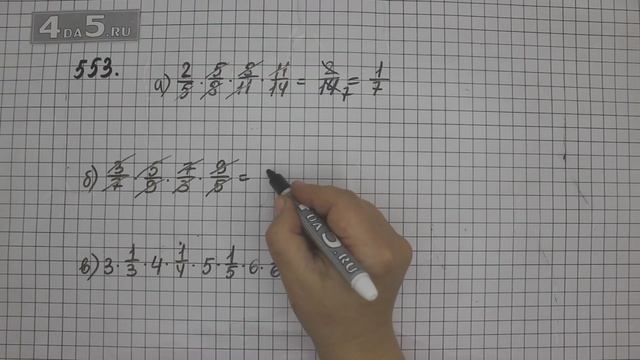 4DA5.RU
553.
а) 2/5 · 5/8 · 8/11 · 11/14 = 2/14 7 = 1/7
б) 3/7 · 5/9 · 7/3 · 9/5 =
в) 3 · 1/3 · 4 · 1/4 · 5 · 1/5 · 6 ·
4DA5.RU